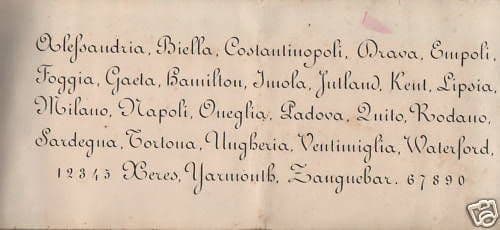 Alessandria, Biella, Costantinopoli, Drava, Empoli,
Foggia, Gaeta, Hamilton, Imola, Jutland, Kent, Lipsia,
Milano, Napoli, Oneglia, Padova, Quito, Rodano,
Sardegna, Tortona, Ungheria, Ventimiglia, Waterford,
1 2 3 4 5 Xeres, Yarmouth, Zanguebar. 6 7 8 9 0